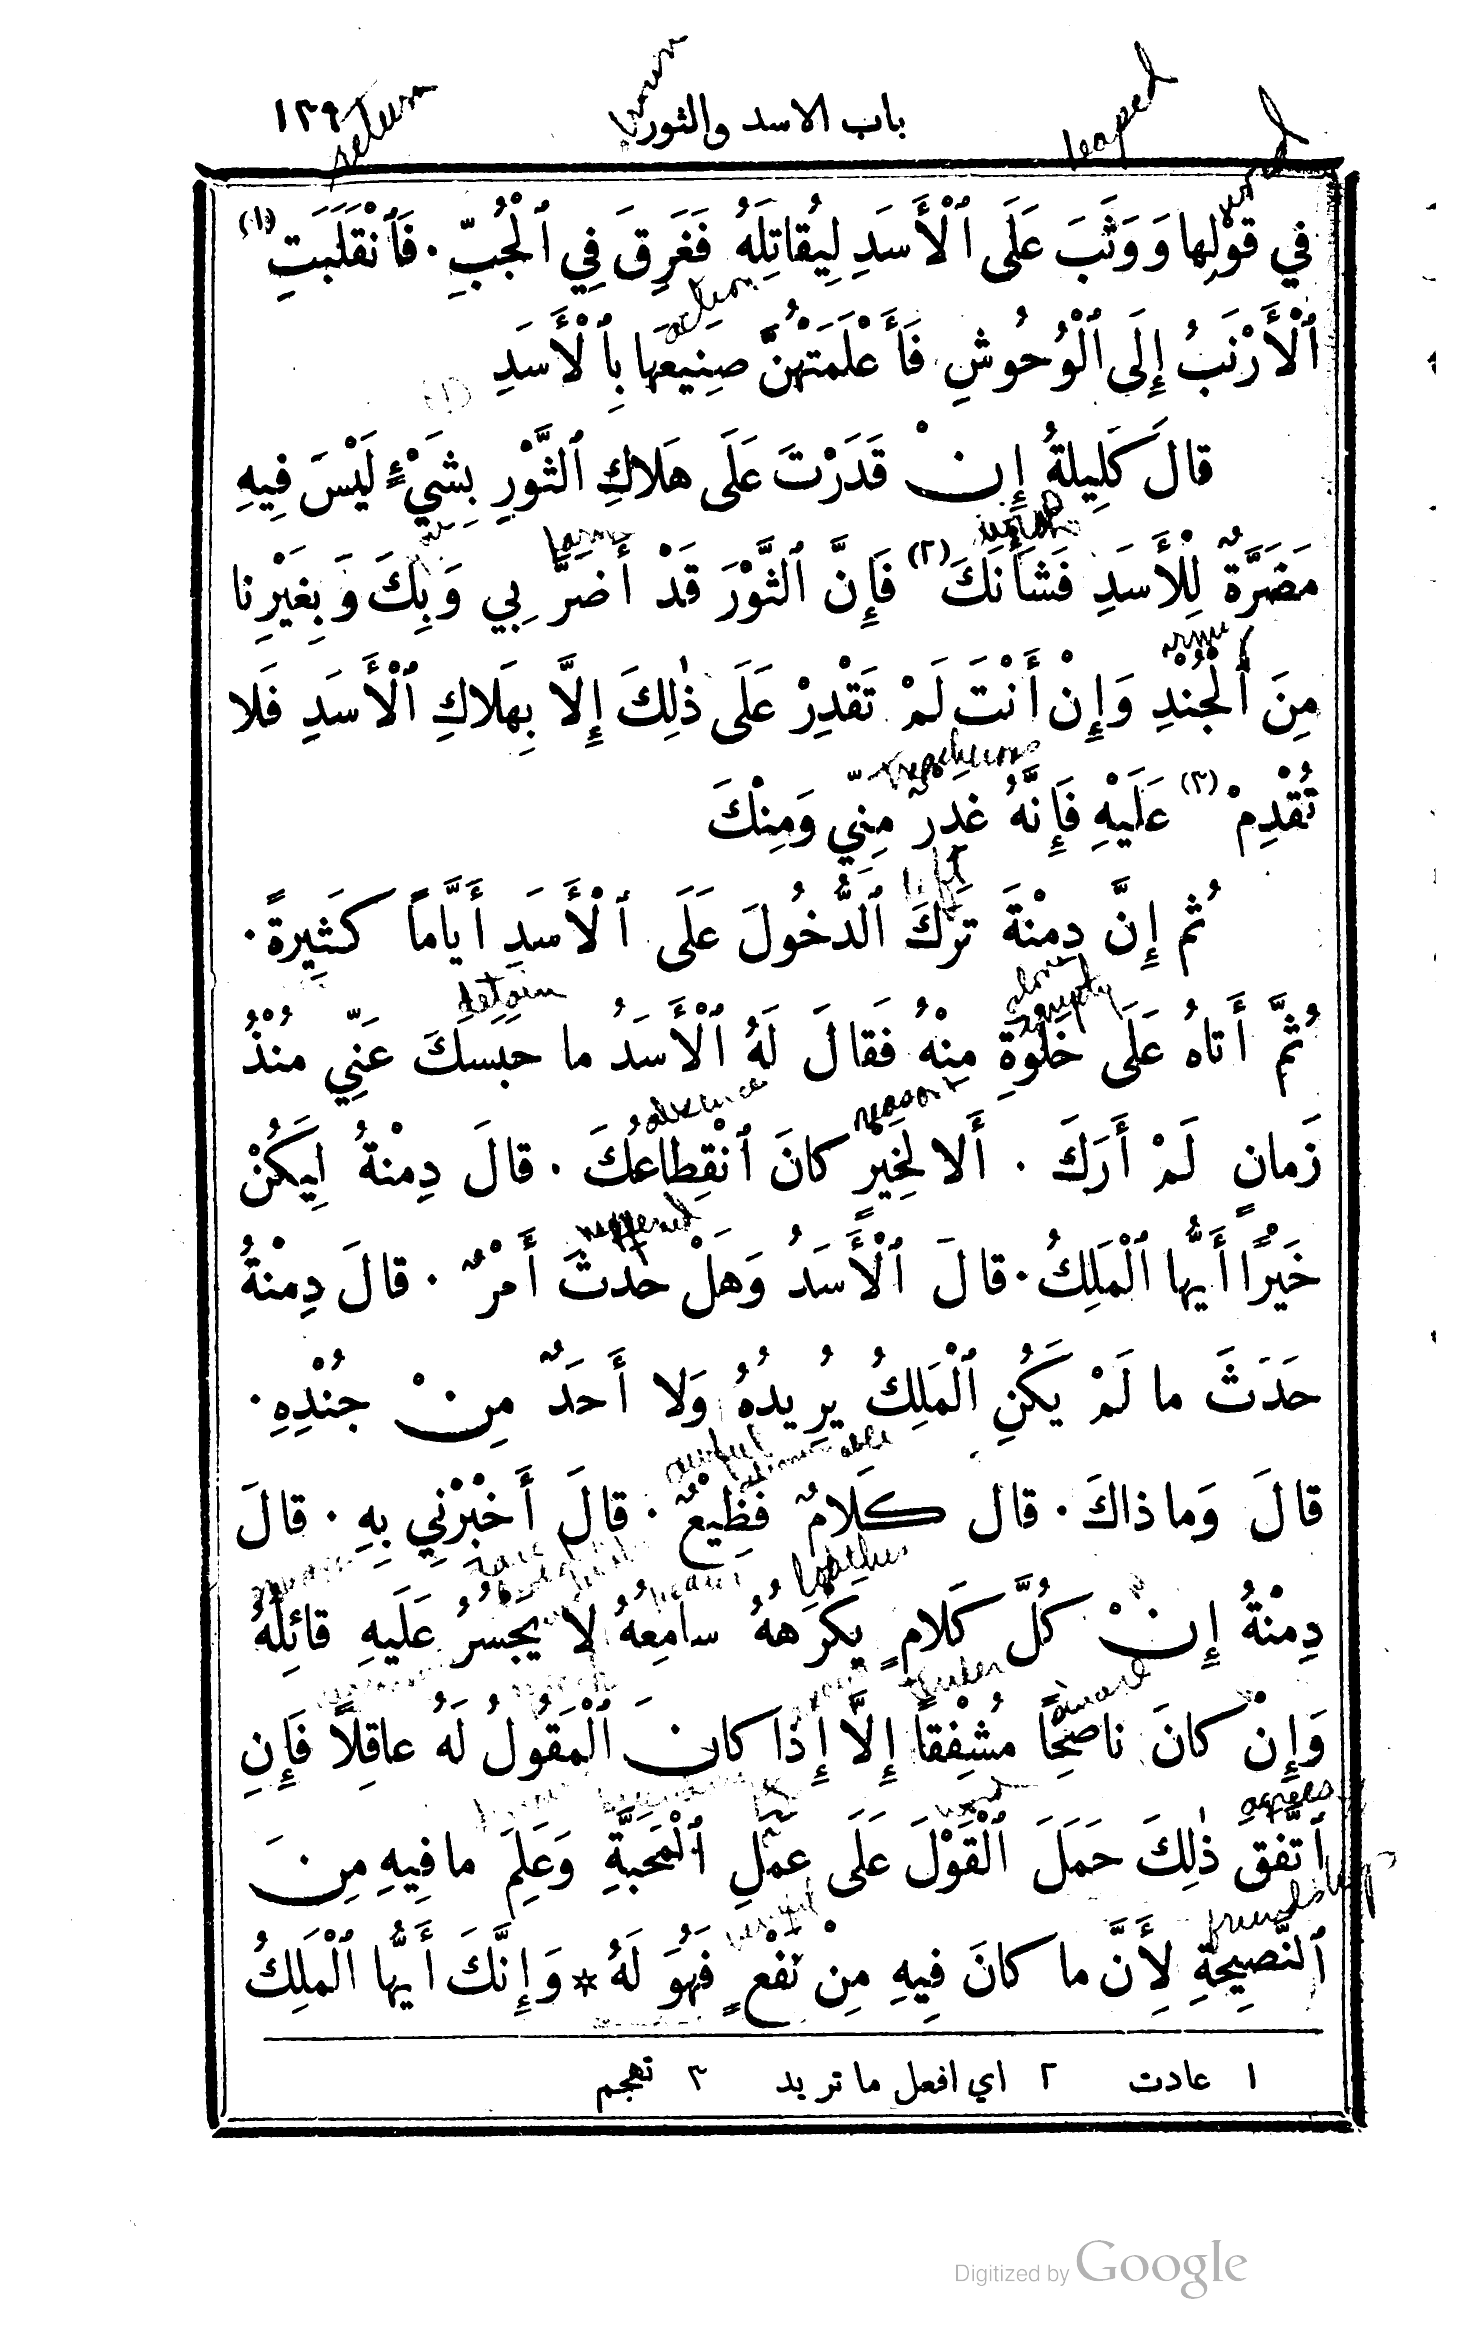 باب الاسد والثور ١٣٩
return
leaped
word
فِي قَوْلِها وَوَثَبَ عَلَى ٱلْأَسَدِ لِيُقاتِلَهُ فَغَرِقَ فِي ٱلْجُبِّ · فَٱنْقَلَبَتِ (١)
action
ٱلْأَرْنَبُ إِلَى ٱلْوُحُوشِ فَأَعْلَمَتْهُنَّ صَنِيعَهَا بِٱلْأَسَدِ
قالَ كَلِيلَةُ إِنْ قَدَرْتَ عَلَى هَلاكِ ٱلثَّوْرِ بِشَيْءٍ لَيْسَ فِيهِ
harm
مَضَرَّةٌ لِلْأَسَدِ فَشَأْنَكَ (٢) فَإِنَّ ٱلثَّوْرَ قَدْ أَضَرَّ بِي وَبِكَ وَبِغَيْرِنا
army
مِنَ ٱلْجُنْدِ وَإِنْ أَنْتَ لَمْ تَقْدِرْ عَلَى ذٰلِكَ إِلَّا بِهَلاكِ ٱلْأَسَدِ فَلا
treacherous
تُقْدِمْ (٣) عَلَيْهِ فَإِنَّهُ غَدْرٌ مِنِّي وَمِنْكَ
left
ثُم إِنَّ دِمْنَةَ تَرَكَ ٱلدُّخُولَ عَلَى ٱلْأَسَدِ أَيَّاماً كَثِيرَةً ·
detain
alone
empty
ثُمَّ أَتاهُ عَلَى خَلْوَةٍ مِنْهُ فَقالَ لَهُ ٱلْأَسَدُ ما حَبَسَكَ عَنِّي مُنْذُ
absence
reason
زَمانٍ لَمْ أَرَكَ · أَلا لِخَيْرٍ كانَ ٱنْقِطاعُكَ · قالَ دِمْنةُ لِيَكُنْ
happened
خَيْرًا أَيُّها ٱلْمَلِكُ · قالَ ٱلْأَسَدُ وَهَلْ حَدَثَ أَمْرٌ · قالَ دِمْنةُ
حَدَثَ ما لَمْ يَكُنِ ٱلْمَلِكُ يُرِيدُهُ وَلا أَحَدٌ مِنْ جُنْدِهِ ·
awful
abominable
قالَ وَما ذاكَ · قال كَلامٌ فَظِيعٌ · قالَ أَخْبِرْنِي بِهِ · قالَ
loathes
hears
دِمْنةُ إِنْ كُلَّ كَلامٍ يَكْرَهُهُ سامِعُهُ لا يَجْسُرُ عَلَيهِ قائِلُهُ
وَإِنْ كانَ ناصِحًا مُشْفِقاً إِلَّا إِذَا كانَ ٱلْمَقُولُ لَهُ عاقِلًا فَإِنِ
agrees
ٱتَّفَقَ ذٰلِكَ حَمَلَ ٱلْقَوْلَ عَلَى عَمَلِ ٱلْمَحَبَّةِ وَعَلِمَ ما فِيهِ مِنَ
friendship
ٱلنَّصِيحَةِ لِأَنَّ ما كانَ فِيهِ مِنْ نَفْعٍ فَهُوَ لَهُ * وَإِنَّكَ أَيُّها ٱلْمَلِكُ
١ عادت ٢ اي افعل ما تريد ٣ تهجم
Digitized by Google